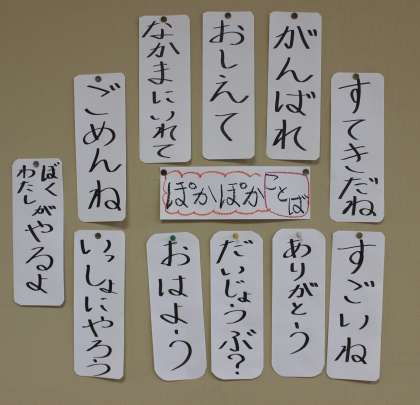 ぽかぽかことば
すてきだね
がんばれ
おしえて
なかまにいれて
ごめんね
ぼく
わたしがやるよ
すごいね
ありがとう
だいじょうぶ?
おはよう
いっしょにやろう